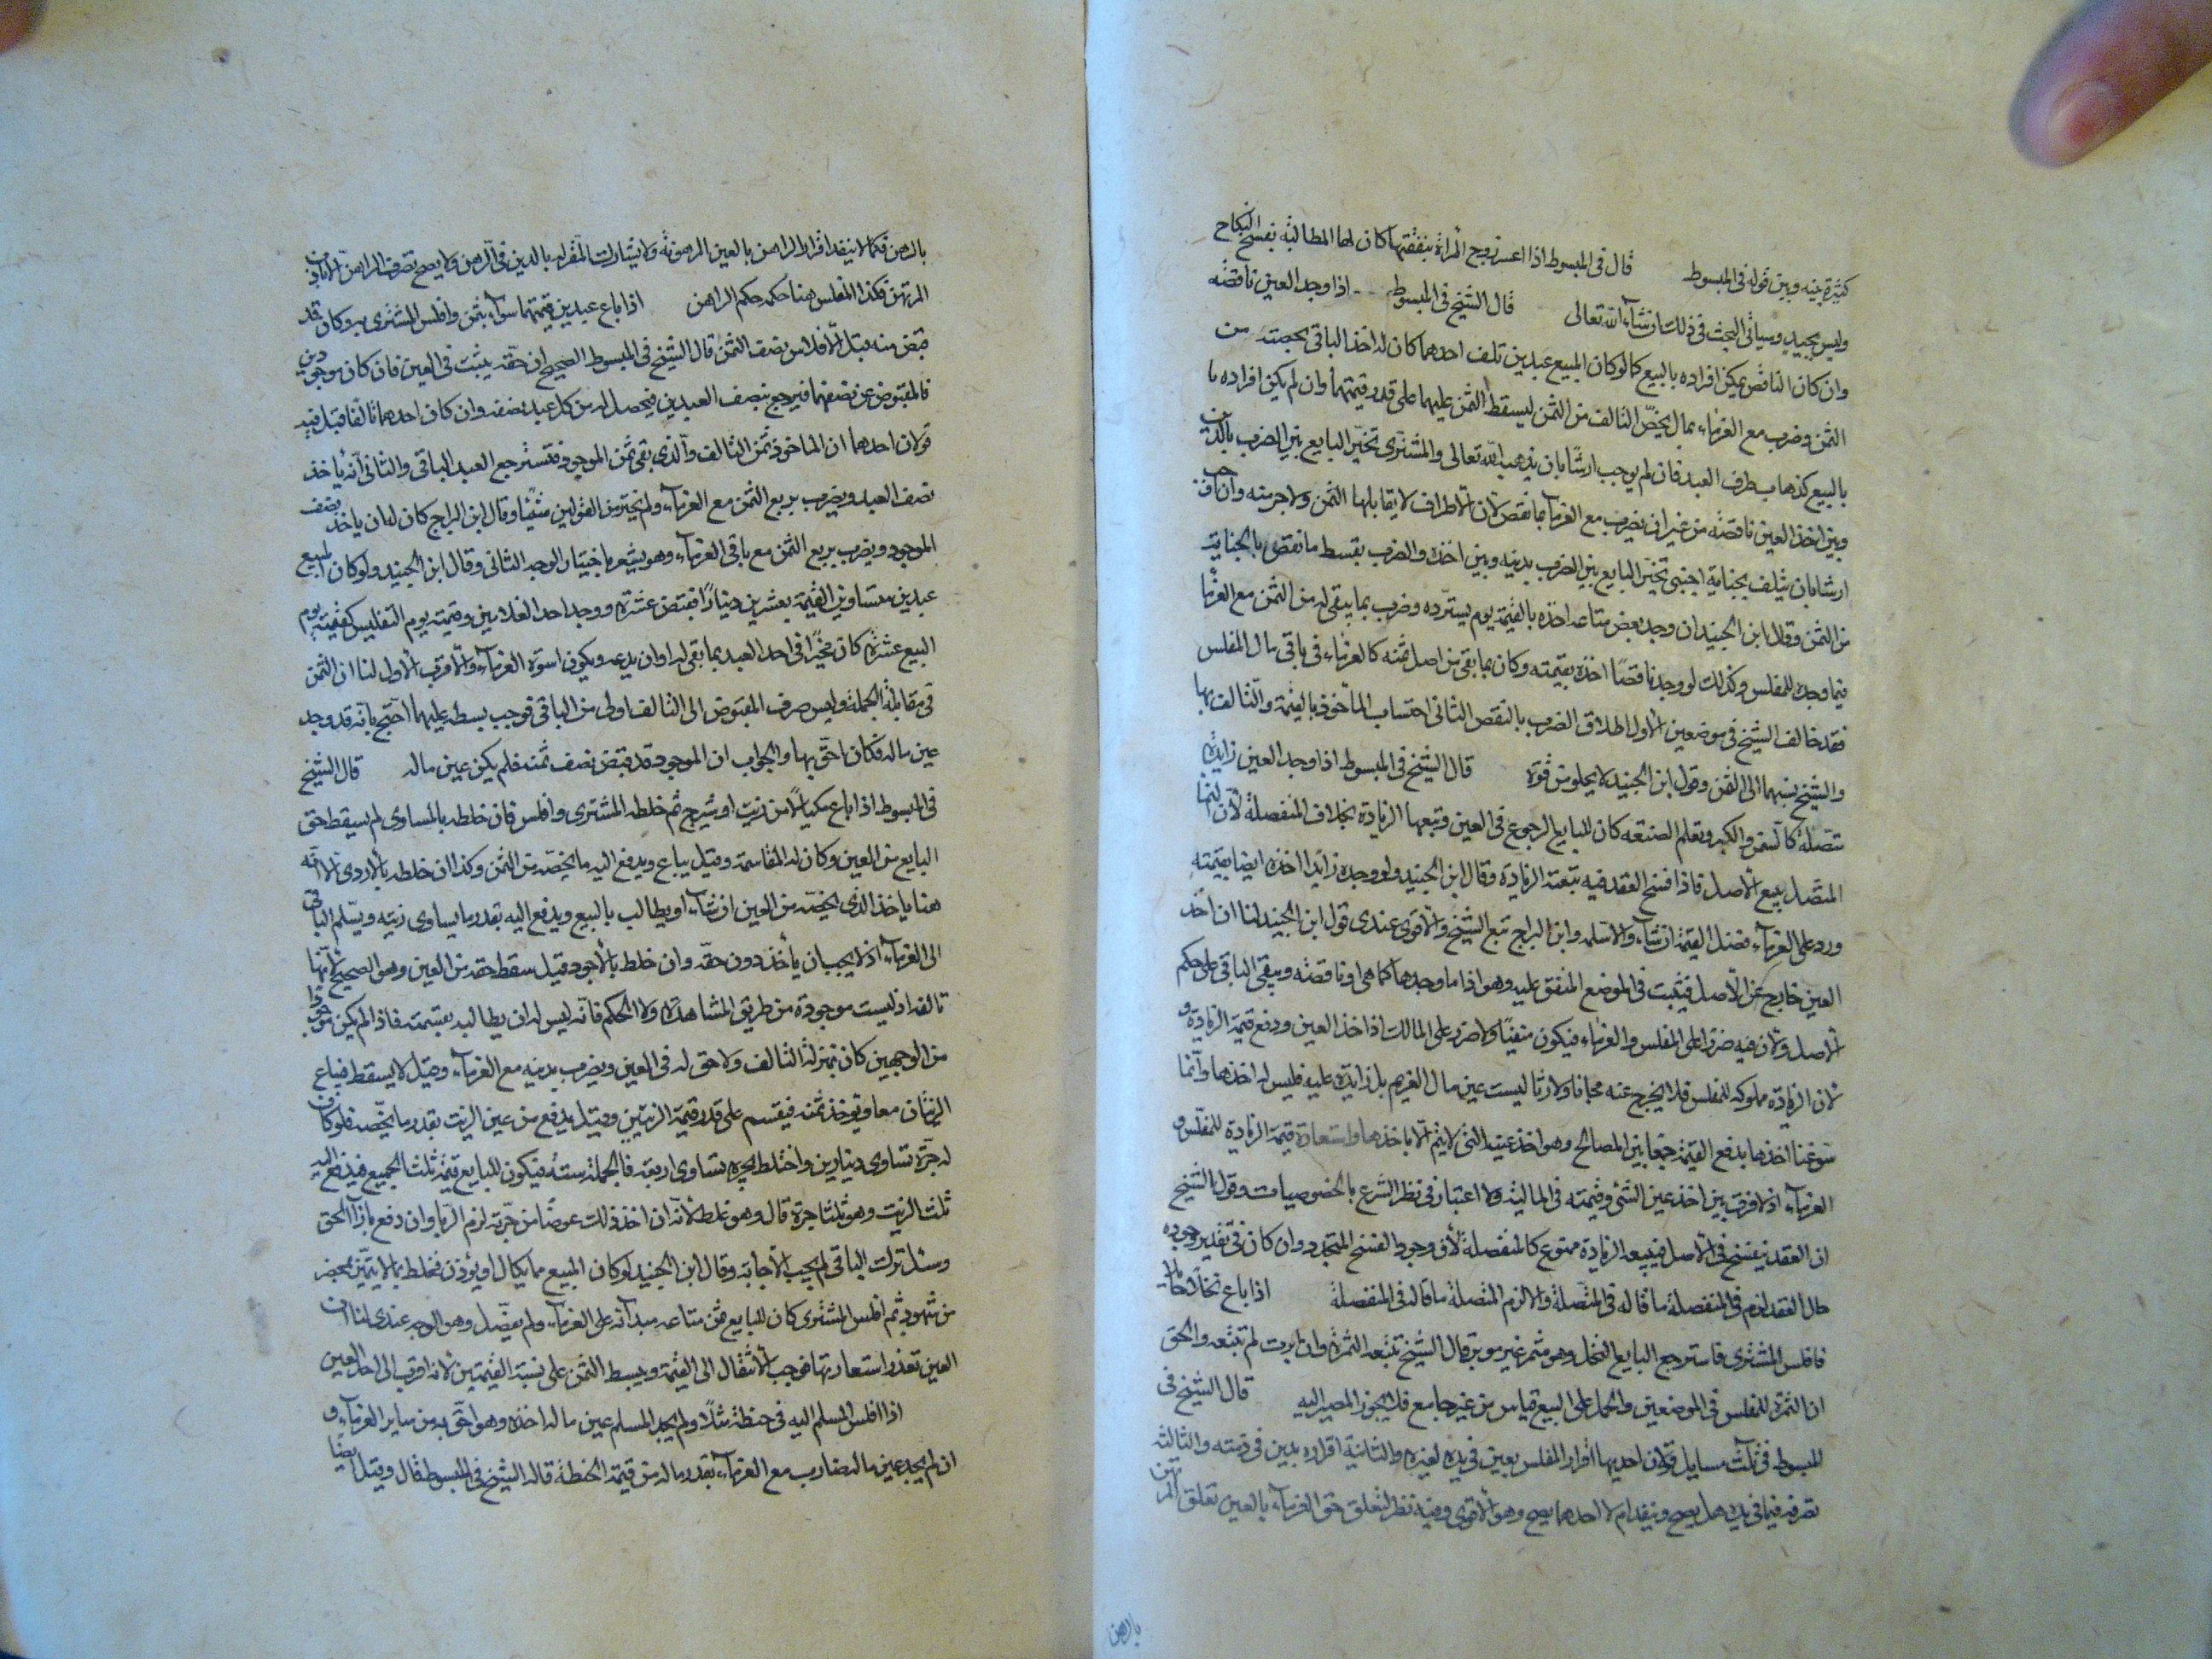 كثيرة بينه وبين قوله في المبسوط قال في المبسوط اذا اعسر زوج المراة بنفقتها كان لها المطالبة بفسخ النكاح
وليس بجيد وسياتي البحث في ذلك ان شآء الله تعالى قال الشيخ في المبسوط اذا وجد العين ناقصة
وان كان الناقص يمكن افراده بالبيع كما لو كان المبيع عبدين تلف احدهما كان له اخذ الباقي بحصته من
الثمن وضرب مع الغرماء بمال يخص التالف من الثمن ليسقط الثمن عليهما على قدر قيمتهما وان لم يكن افراده
بالبيع كذهاب طرف العبد فان لم يوجب ارشا بان يذهب الله تعالى والمشتري تخير البايع بين الضرب بالدين
وبين اخذ العين ناقصة من غير ان يضرب مع الغرمآء بما نقص لان الاطراف لا يقابلها الثمن ولا جزء منه وان اوجب
ارشا بان يتلف بجناية اجنبي تخير البايع بين الضرب بدينه وبين اخذه والضرب بقسط ما نقص بالجناية
من الثمن وقال ابن الجنيد ان وجد بعض متاعه اخذه بالقيمة يوم يسترده وضرب بما يبقى له من الثمن مع الغرماء
فيما وجده للمفلس وكذلك لو وجد ناقصا اخذه بقيمته وكان بما بقي من اصل ثمنه كالغرماء في باقي مال المفلس
فقد خالف الشيخ في موضعين الاول اطلاق الضرب بالنقص الثاني احتساب الماخوذ بالقيمة والتالف بها
والشيخ نسبهما الى الثمن وقول ابن الجنيد لا يخلو من قوة قال الشيخ في المبسوط اذا وجد العين زايدة
متصلة كالسمن والكبر وتعلم الصنعة كان للبايع الرجوع في العين وتبعها الزيادة بخلاف المنفصلة لان النما
المتصل يبيع الاصل فاذا فسخ العقد فيه تبعته الزيادة وقال ابن الجنيد ولو وجده زايدا اخذه ايضا بقيمته
ورد على الغرمآء فضل القيمة ان شآء والا سلمه وابن البراج تبع الشيخ والاقوى عندي قول ابن الجنيد لنا ان اخذ
العين خارج عن الاصل فيثبت في الموضع المتفق عليه وهو اذا ما وجدها كما هي او ناقصة ويبقى الباقي على حكم
الاصل ولان فيه ضررا على المفلس والغرماء فيكون منفيا ولا ضرر على المالك اذا اخذ العين ودفع قيمة الزيادة و
لان الزيادة مملوكه للمفلس فلا يخرج عنه مجانا ولانها ليست عين مال الغريم بل زايدة عليه فليس له اخذها وانما
سوغنا اخذها بدفع القيمة جمعا بين المصالح وهو اخذ عينه التي لا يتم الا باخذها واستعادة قيمة الزيادة للمفلس و
الغرمآء اذ لا فرق بين اخذ عين الشئ وقيمته في المالية ولا اعتبار في نظر الشرع بالخصوصيات وقول الشيخ
ان العقد يفسخ في الاصل فيتبعه الزيادة ممنوع كالمنفصلة لان وجود الفسخ المتجدد وان كان في تقدير وجوده
حال العقد لزم في المنفصلة ما قاله في المتصلة والا لزم المتصلة ما قاله في المنفصلة اذا باع نخلا حايلا
فافلس المشتري فاسترجع البايع النخل وهو مثمر غير موبر قال الشيخ تتبعه الثمرة وان ابرت لم تتبعه والحق
ان الثمرة للمفلس في الموضعين والحمل على البيع قياس من غير جامع فلا يجوز المصير اليه قال الشيخ في
المبسوط في ثلث مسايل قولان احديها اقرار المفلس بعين في يده لغيره والثانية اقراره بدين في ذمته والثالثة
تصرفه فيما في يده هل يصح وينفد ام لا احدهما يصح وهو الاقوى وفيه نظر لتعلق حق الغرمآء بالعين تعلق المرتهن
بالرهن
بالرهن فكما لا ينفد اقرار الراهن بالعين المرهونة ولا يشارك المقر له بالدين في الرهن ولا يصح تصرف الراهن الا باذن
المرتهن فكذا المفلس هنا حكمه حكم الراهن اذا باع عبدين قيمتهما سوآء بثمن وافلس المشتري به وكان قد
قبض منه قبل الافلاس نصف الثمن قال الشيخ في المبسوط الصحيح ان حقه يثبت في العين فان كان موجودين
فالمقبوض عن نصفهما فيرجع بنصف العبدين فيحصل له من كل عبد نصفه وان كان احدهما تالفا قيل فيه
قولان احدهما ان الماخوذ ثمن التالف والذي بقي ثمن الموجود فتسترجع العبد الباقي والثاني انه ياخذ
نصف العبد ويضرب بربع الثمن مع الغرمآء ولم يختر من القولين شيئا وقال ابن البراج كان له ان ياخذ نصف
الموجود ويضرب بربع الثمن مع باقي الغرمآء وهو يشعر باختيار الوجه الثاني وقال ابن الجنيد ولو كان المبيع
عبدين متساوين القيمة بعشرين دينارا فقبض عشرة ووجد احد الغلامين وقيمته يوم التفليس كقيمته يوم
البيع عشرة كان مخيرا في احد العبد بما بقي له او ان يدعه ويكون اسوة الغرمآء والاقرب الاول لنا ان الثمن
في مقابلة الجملة وليس صرف المقبوض الى التالف اولى من الباقي فوجب بسطه عليهما احتج بانه قد وجد
عين ماله فكان احق بها والجواب ان الموجود قد قبض نصف ثمنه فلم يكن عين ماله قال الشيخ
في المبسوط اذا باع مكيالا من زيت او شيرج ثم خلطه المشتري وافلس فان خلطه بالمساوي لم يسقط حق
البايع من العين وكان له المقاسمة وقيل يباع ويدفع اليه ما يخصه من الثمن وكذا ان خلطه بالاردى الا انه
هنا ياخذ الذي يخصه من العين ان شآء او يطالب بالبيع ويدفع اليه بقدر ما يساوي زيته ويسلم الباقي
الى الغرمآء اذ لا يجب ان ياخذ دون حقه وان خلط بالاجود قيل سقط حقه من العين وهو الصحيح لانها
تالفه اذ ليست موجودة من طريق المشاهدة ولا الحكم فانه ليس له ان يطالبه بقسمته فاذا لم يكن موجودا
من الوجهين كان بمنزلة التالف ولا حق له في العين ويضرب بدينه مع الغرمآء وقيل لا يسقط فيباع
الزيتان معا ويوخذ ثمنه فيقسم على قدر قيمة الزيتين وقيل يدفع من عين الزيت بقدر ما يخصه فلو كان
له جرة تساوي دينارين واختلط بجرة تساوي اربعة فالجملة ستة فيكون للبايع قيمة ثلث الجميع فيدفع اليه
ثلث الزيت وهو ثلثا جرة قال وهو غلط لانه ان اخذ ذلك عوضا من جرته لزم الربا وان دفع بازآء الحق
وسئل ترك الباقي لم يجب الاجابة وقال ابن الجنيد لو كان المبيع مما يكال او يوزن فخلط بما لا يتميز بمحضر
من شهود ثم افلس المشتري كان للبايع ثمن متاعه مبدآ به على الغرمآء ولم يفصل وهو الوجه عندي لنا ان
العين تعذر استعادتها فوجب الانتقال الى القيمة ويبسط الثمن على نسبة القيمتين لانه اقرب الى اخذ العين
اذا افلس المسلم اليه في حنطة مثلا ولم يجد المسلم عين ماله اخذه وهو احق به من ساير الغرمآء و
ان لم يجد عين ماله ضارب مع الغرمآء بقدر ماله من قيمة الحنطة قاله الشيخ في المبسوط قال وقيل ايضا